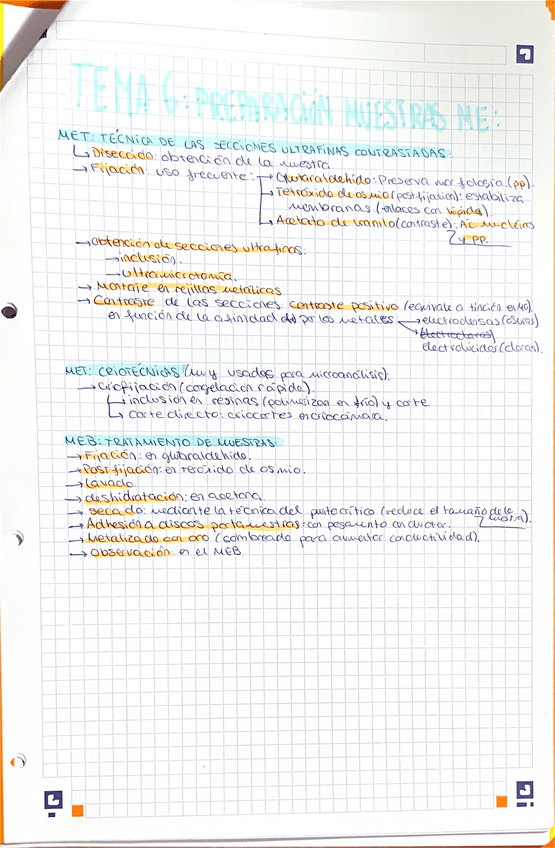 TEMA 6: PREPARACIÓN MUESTRAS ME:
MET: TÉCNICA DE LAS SECCIONES ULTRAFINAS CONTRASTADAS:
↳ Disección: obtención de la muestra
→ Fijación: uso frecuente: → Glutaraldehído: Preserva morfología (pp).
↳ Tetróxido de osmio (postfijación): estabiliza
membranas (enlaces con lípidos).
↳ Acetato de uranilo (contraste): Ác nucleicos
y pp.
→ Obtención de secciones ultrafinas:
→ inclusión.
→ Ultramicrotomía.
→ Montaje en rejillas metálicas
→ Contraste de las secciones: contraste positivo (equivale a tinción en MO)
en función de la afinidad por los metales → electrodensas (oscuras)
→ electroclaras
electrolúcidas (claras).
MET: CRIOTÉCNICAS (muy usadas para microanálisis).
→ Criofijación (congelación rápida).
↳ inclusión en resinas (polimerizan en frío) y corte
↳ corte directo: criocortes en criocámara.
MEB: TRATAMIENTO DE MUESTRAS:
→ Fijación: en glutaraldehido.
→ Post fijación: en tetróxido de osmio.
→ Lavado.
→ deshidratación: en acetona
→ secado: mediante la técnica del punto crítico (reduce el tamaño de la
muestra).
→ Adhesión a discos portamuestras: con pegamento conductor.
→ Metalizado con oro (sombreado para aumentar conductividad).
→ Observación en el MEB